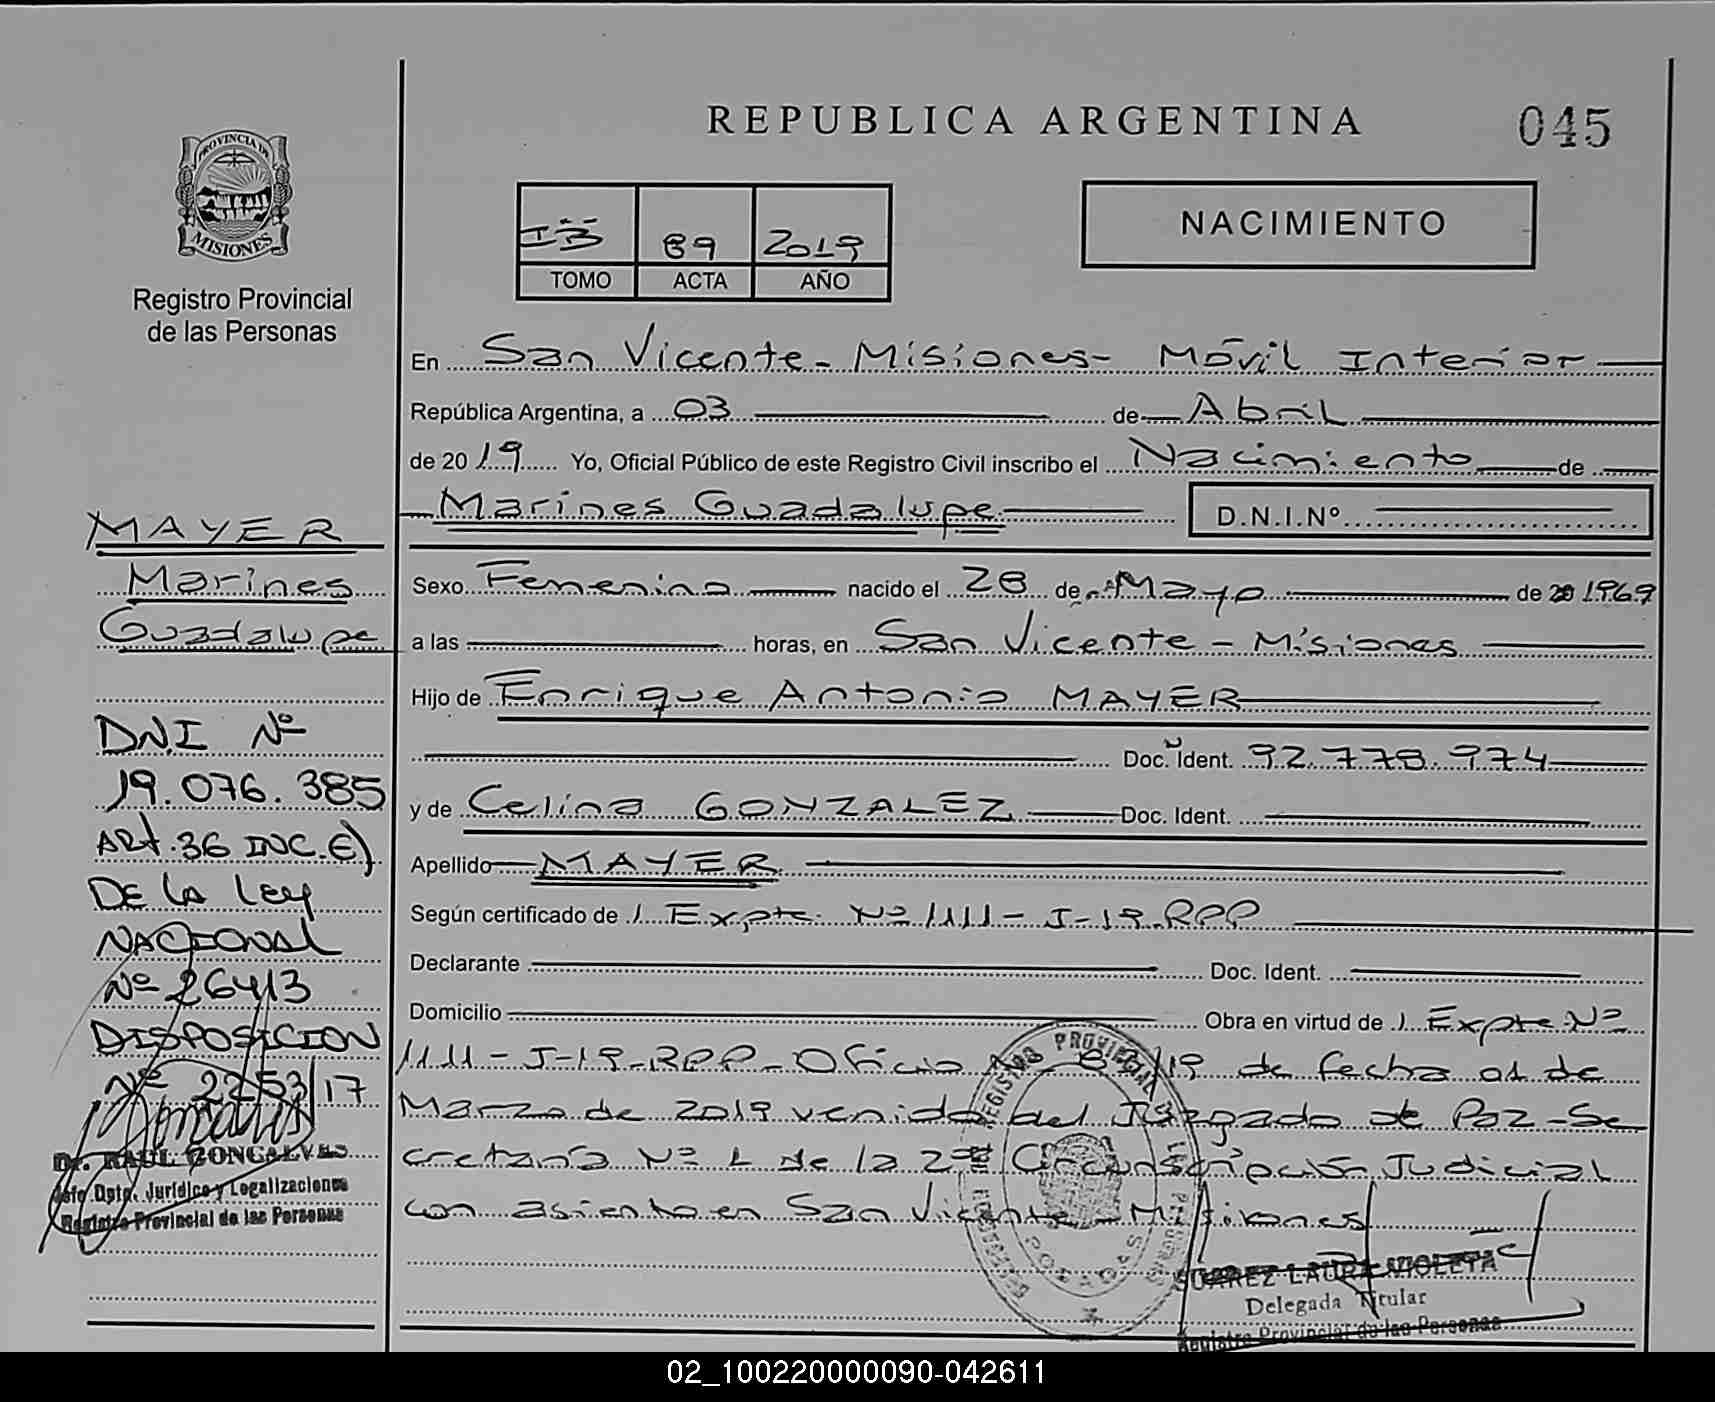 REPUBLICA ARGENTINA
045
PROVINCIA DE
MISIONES
Registro Provincial
de las Personas
89 2019
TOMO ACTA AÑO
NACIMIENTO
En San Vicente - Misiones - Móvil Interior
República Argentina, a 03 de Abril
de 2019 Yo, Oficial Público de este Registro Civil inscribo el Nacimiento de
Marines Guadalupe D.N.I.Nº
Sexo Femenino nacido el 28 de Mayo de 1969
a las horas, en San Vicente - Misiones
Hijo de Enrique Antonio MAYER
Doc. Ident. 92.778.974
y de Celina GONZALEZ Doc. Ident.
Apellido MAYER
Según certificado de Expte. Nº 1111-J-19-RPP
Declarante Doc. Ident.
Domicilio Obra en virtud de Expte Nº
1111-J-19-RPP - Oficio /19 de fecha 01 de
Marzo de 2019 venido del Juzgado de Paz - Se
cretaría Nº 1 de la 2da Circunscripción Judicial
con asiento en San Vicente - Misiones
MAYER
Marines
Guadalupe
DNI Nº
19.076.385
ART. 36 INC. E)
DE LA LEY
NACIONAL
Nº 26413
DISPOSICION
Nº 2253/17
Dr. RAUL GONCALVES
Jefe Dpto. Jurídico y Legalizaciones
Registro Provincial de las Personas
POSADAS
SUAREZ LAURA VIOLETA
Delegada Titular
Registro Provincial de las Personas
02_100220000090-042611